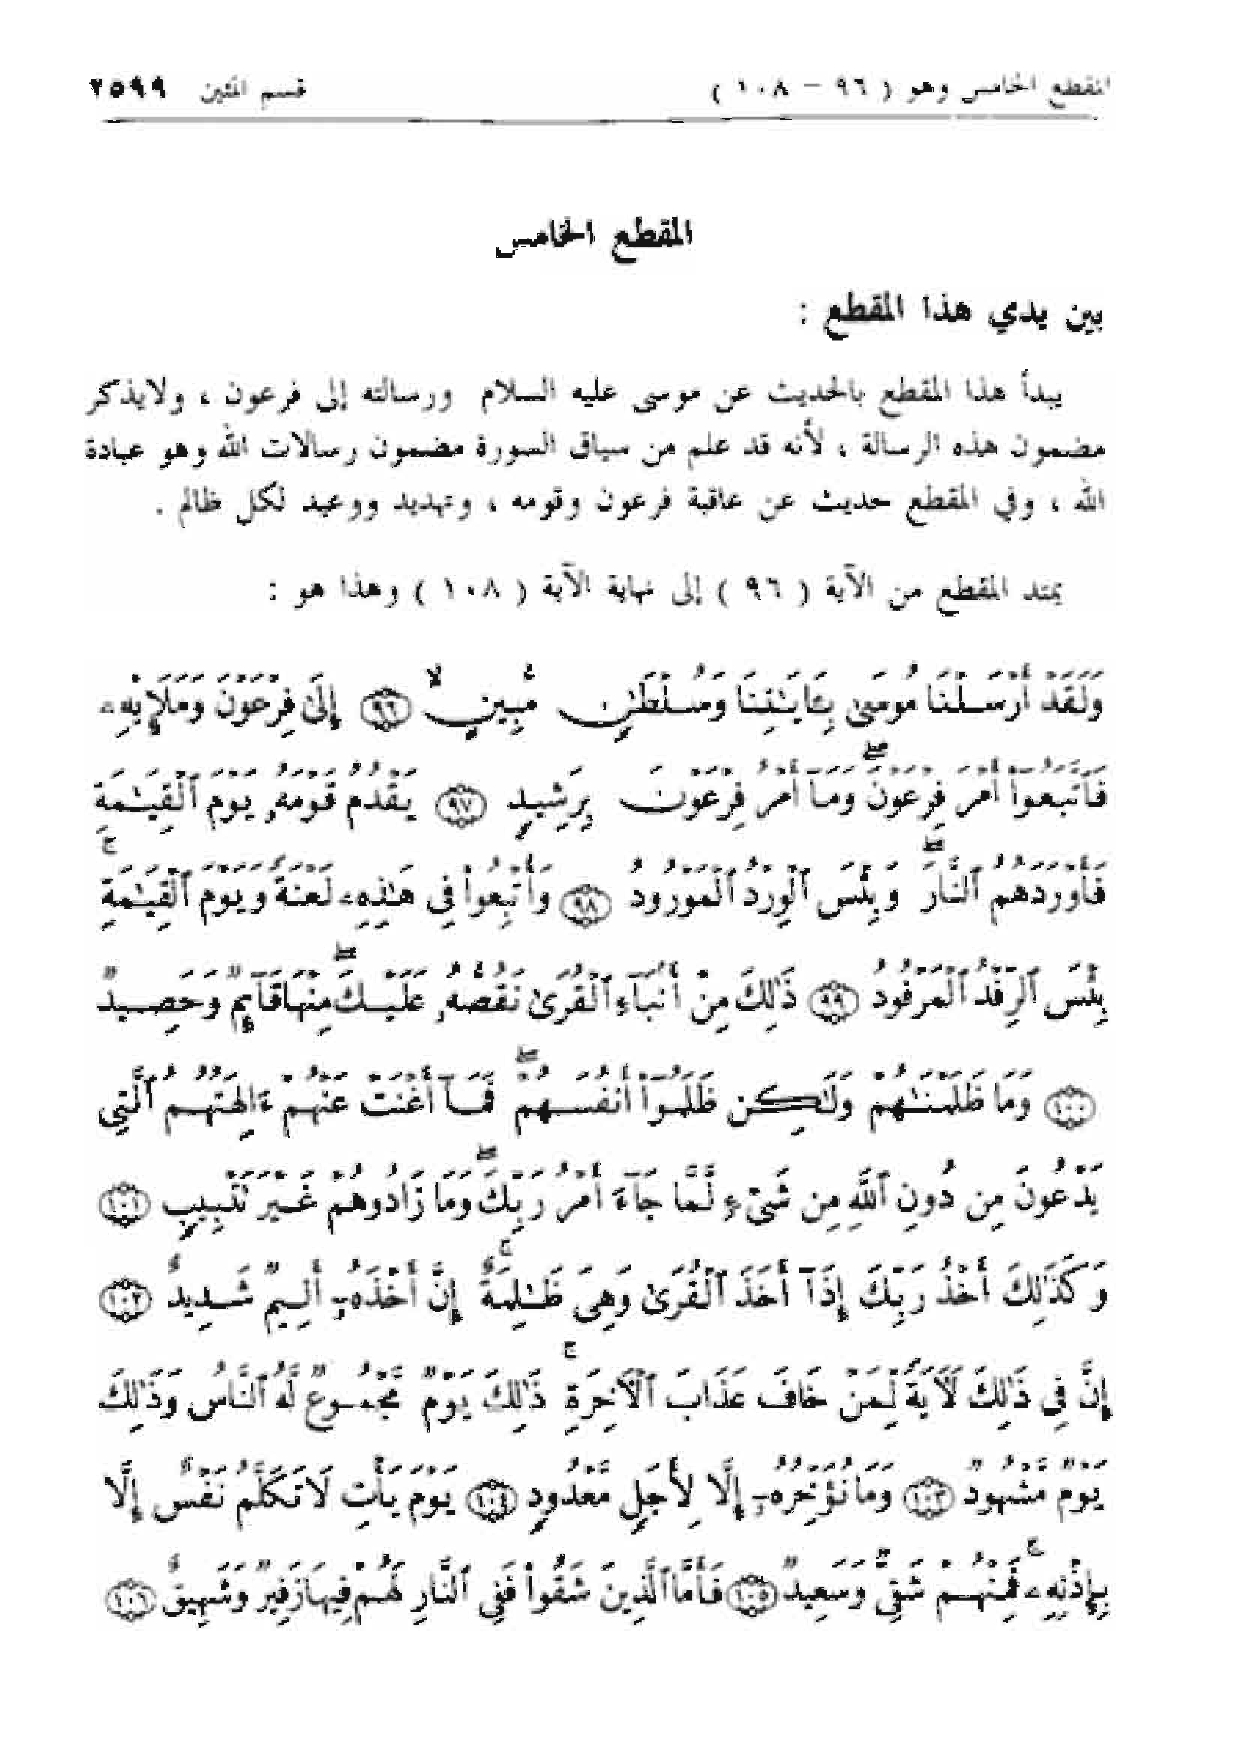 المقطع الخامس وهو ( ٩٦ – ١٠٨ ) قسم المئين ٢٥٩٩
المقطع الخامس
بين يدي هذا المقطع :
يبدأ هذا المقطع بالحديث عن موسى عليه السلام ورسالته إلى فرعون ، ولايذكر
مضمون هذه الرسالة ، لأنه قد علم من سياق السورة مضمون رسالات الله وهو عبادة
الله ، وفي المقطع حديث عن عاقبة فرعون وقومه ، وتهديد ووعيد لكل ظالم .
يمتد المقطع من الآية ( ٩٦ ) إلى نهاية الآية ( ١٠٨ ) وهذا هو :
وَلَقَدْ أَرْسَلْنَا مُوسَىٰ بِـَٔايَـٰتِنَا وَسُلْطَـٰنٍ مُّبِينٍ ۙ ٩٦ إِلَىٰ فِرْعَوْنَ وَمَلَإِيْهِۦ
فَٱتَّبَعُوٓا۟ أَمْرَ فِرْعَوْنَ ۖ وَمَآ أَمْرُ فِرْعَوْنَ بِرَشِيدٍ ٩٧ يَقْدُمُ قَوْمَهُۥ يَوْمَ ٱلْقِيَـٰمَةِ
فَأَوْرَدَهُمُ ٱلنَّارَ ۖ وَبِئْسَ ٱلْوِرْدُ ٱلْمَوْرُودُ ٩٨ وَأُتْبِعُوا۟ فِى هَـٰذِهِۦ لَعْنَةً وَيَوْمَ ٱلْقِيَـٰمَةِ ۚ
بِئْسَ ٱلرِّفْدُ ٱلْمَرْفُودُ ٩٩ ذَٰلِكَ مِنْ أَنۢبَآءِ ٱلْقُرَىٰ نَقُصُّهُۥ عَلَيْكَ ۖ مِنْهَا قَآئِمٌ وَحَصِيدٌ
١٠٠ وَمَا ظَلَمْنَـٰهُمْ وَلَـٰكِن ظَلَمُوٓا۟ أَنفُسَهُمْ ۖ فَمَآ أَغْنَتْ عَنْهُمْ ءَالِهَتُهُمُ ٱلَّتِى
يَدْعُونَ مِن دُونِ ٱللَّهِ مِن شَىْءٍ لَّمَّا جَآءَ أَمْرُ رَبِّكَ ۖ وَمَا زَادُوهُمْ غَيْرَ تَتْبِيبٍ ١٠١
وَكَذَٰلِكَ أَخْذُ رَبِّكَ إِذَآ أَخَذَ ٱلْقُرَىٰ وَهِىَ ظَـٰلِمَةٌ ۚ إِنَّ أَخْذَهُۥٓ أَلِيمٌ شَدِيدٌ ١٠٢
إِنَّ فِى ذَٰلِكَ لَـَٔايَةً لِّمَنْ خَافَ عَذَابَ ٱلْـَٔاخِرَةِ ۚ ذَٰلِكَ يَوْمٌ مَّجْمُوعٌ لَّهُ ٱلنَّاسُ وَذَٰلِكَ
يَوْمٌ مَّشْهُودٌ ١٠٣ وَمَا نُؤَخِّرُهُۥٓ إِلَّا لِأَجَلٍ مَّعْدُودٍ ١٠٤ يَوْمَ يَأْتِ لَا تَكَلَّمُ نَفْسٌ إِلَّا
بِإِذْنِهِۦ ۚ فَمِنْهُمْ شَقِىٌّ وَسَعِيدٌ ١٠٥ فَأَمَّا ٱلَّذِينَ شَقُوا۟ فَفِى ٱلنَّارِ لَهُمْ فِيهَا زَفِيرٌ وَشَهِيقٌ ١٠٦